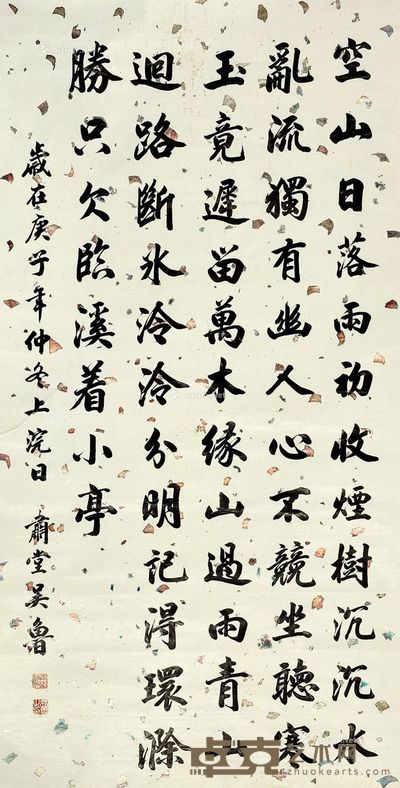 空山日落雨初收煙樹沉沉水
亂流獨有幽人心不競坐聽寒
玉竟遲留萬木緣山過雨青山
迴路斷水泠泠分明記得環滁
勝只欠臨溪着小亭
歲在庚子年仲冬上浣日 肅堂吳魯
zhuokearts.com